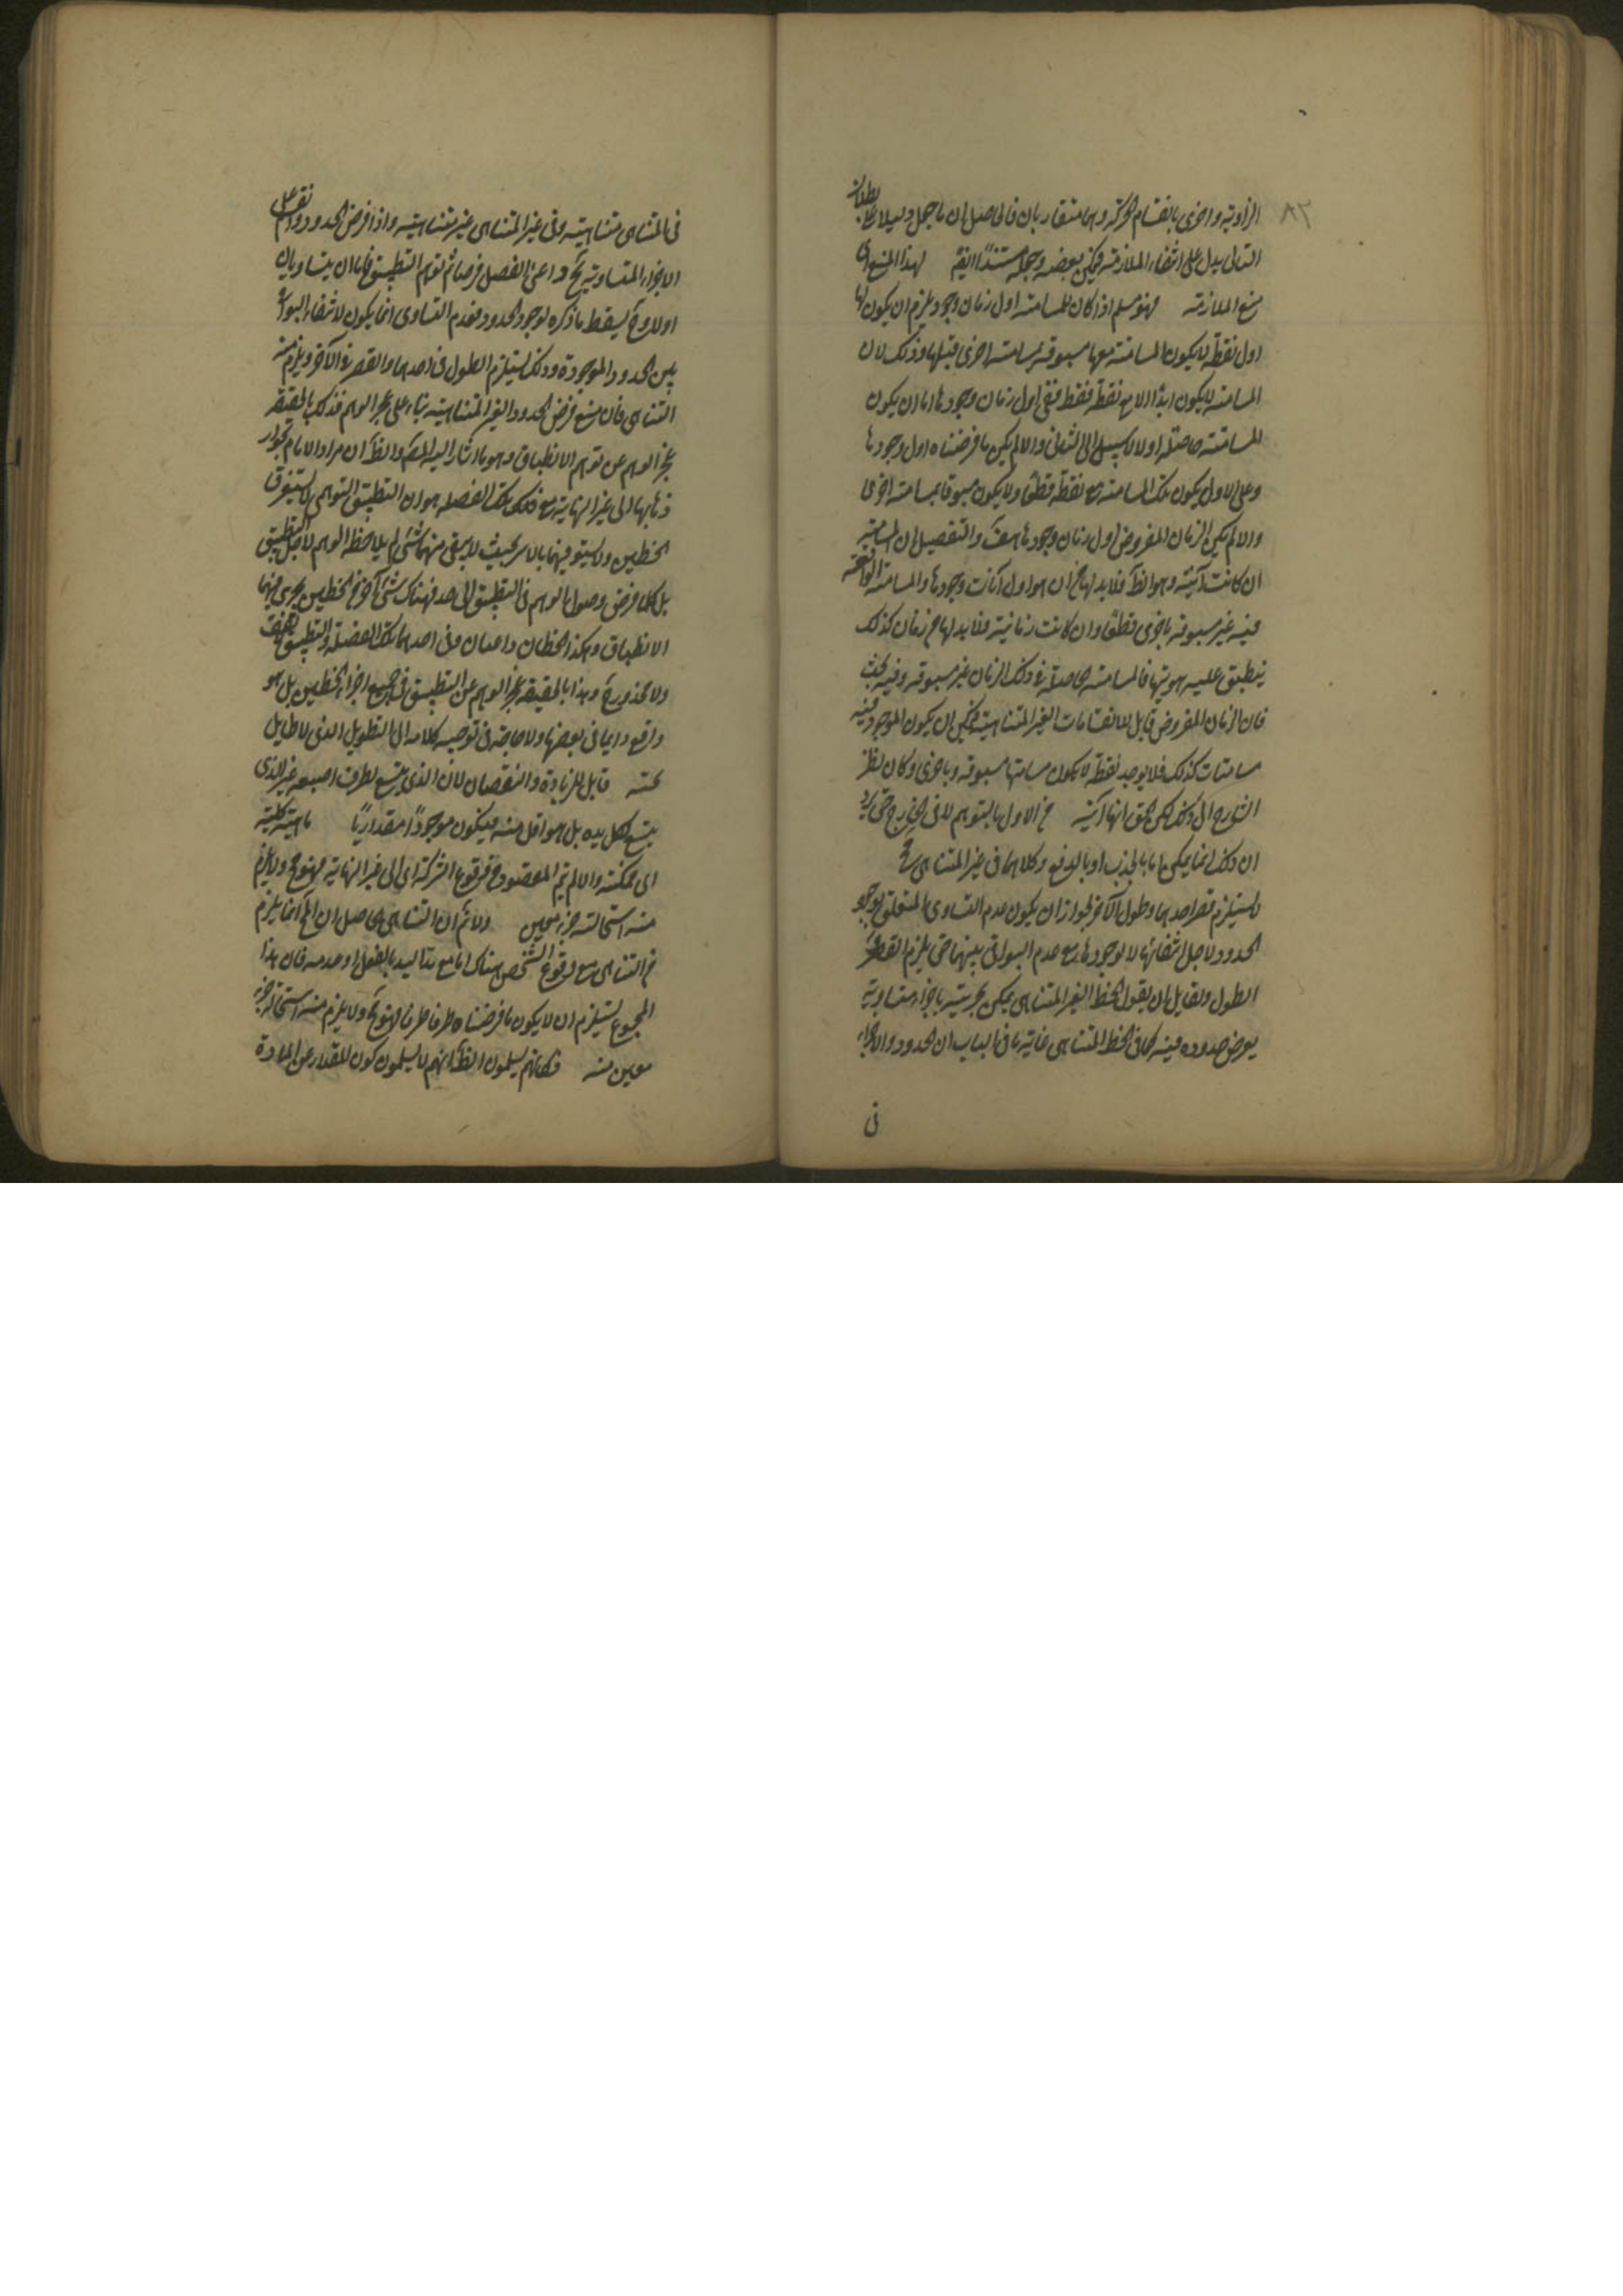 ٨٢
الزاوية واخرى بانقسام الحركة وهما متقاربان فالحاصل ان ما جعل دليلا على بطلان
التالى يدل على انتفاء الملازمة فيمكن بعضه وجعله مستندا ايضم لهذا المنع اى
منع الملازمة فهو مسلم اذا كان للمسامتة اول زمان وجود يلزم ان يكون لها
اول نقطة لا يكون المسامتة معها مسبوقة بمسامتة اخرى قبلها وذلك لان
المسامتة لا يكون ابدا الا مع نقطة فقط ففى اول زمان وجودها اما ان يكون
المسامتة حاصلة او لا لا سبيل الى الثانى والا لم يكن ما فرضناه اول وجودها
وعلى الاول يكون تلك المسامتة مع نقطة قطعا ولا يكون مسبوقا بمسامتة اخرى
والا لم يكن الزمان المفروض اول زمان وجودها هف والتفصيل ان المسامتة
ان كانت آنية وهو الظ فلا بد لها من ان هو اول آنات وجودها والمسامتة الواقعة
فيه غير مسبوقة باخرى قطعا وان كانت زمانية فلا بد لها من زمان كذلك
ينطبق عليه هويتها فالمسامتة الحاصلة فى ذلك الزمان غير مسبوقة وفيه بحث
فان الزمان المفروض قابل للانقسامات الغير المتناهية فيمكن ان يكون الموجود فيه
مسامتات كذلك فلا يوجد نقطة لا يكون مسامتها مسبوقة باخرى وكان نظر
الشارح الى ذلك لكن الحق انها آنية من الاول بالتوهم لا فى الخارج حتى يرد
ان ذلك انما يمكن اما بالجذب او بالدفع وكلاهما فى غير المتناهى مح
لا يستلزم قصر احدهما وطول الآخر لجواز ان يكون عدم التساوى المتعلق بوجود
الحدود لاجل انتفائها لا لوجودها مع عدم البواقى بينهما حتى يلزم القصر و
الطول ولقايل ان يقول الخط الغير المتناهى يمكن تجزيته باجزاء متساوية
يعرض حدوده فيه كما فى الخط المتناهى غاية ما فى الباب ان الحدود والاجزاء
فى
فى المتناهى متناهية وفى غير المتناهى غير متناهية واذا فرض الحدود
الاجزاء المتساوية ثم توهم التطبيق فاما ان يتساويان
اولا وح يسقط ما ذكره لوجود الحدود فعدم التساوى انما يكون لانتفاء البواقى
بين الحدود الموجودة وذلك يستلزم الطول فى احدهما والقصر فى الآخر ويلزم منه
التناهى فان منع فرض الحدود الغير المتناهية بناء على عجز الوهم فذلك بالحقيقة
عجز الوهم عن توهم الانطباق وهو ما اشار اليه المص والظ ان مراد الامام بجواز
ذهابهما الى غير النهاية مع تلك الفضلة هو ان التطبيق التوهمى لا يستغرق
الخطين ولا يستوفيهما بالاسر بحيث لا يبقى منهما شئ لم يلاحظه الوهم لاجل التطبيق
بل كلما فرض وصول الوهم فى التطبيق الى حد فهناك شئ آخر من الخطين يجرى فيهما
الانطباق وهكذا الخطان ذاهبان وفى احدهما تلك الفضلة والتطبيق
ولا محذور فيه وهذا بالحقيقة عجز الوهم عن التطبيق فى جميع اجزاء الخطين بل هو
واقع دايما فى بعضها ولا حاجة فى توجيه كلامه الى التطويل الذى لا طايل
تحته قابل للزيادة والنقصان لان الذى يتسع لطرف اصبعه غير الذى
يتسع لكل يده بل هو اقل منه فيكون موجودا مقداريا ماهية كلية
اى ممكنة والا لم يتم المقصود فوقوع الشركة اى الى غير النهاية ولا يلزم
منه استحالة جزء معين ولا ثم ان التناهى الحاصل ان المح انما يلزم
من التناهى مع وقوع الشخص هناك اما مع بالفعل او عدمه فان هذا
المجموع يستلزم ان لا يكون ما فرضناه طرفا طرفا فهو مح ولا يلزم منه استحالة جزء
معين منه فكانهم يسلمون الظ انهم لا يسلمون كون المقدار عن المادة